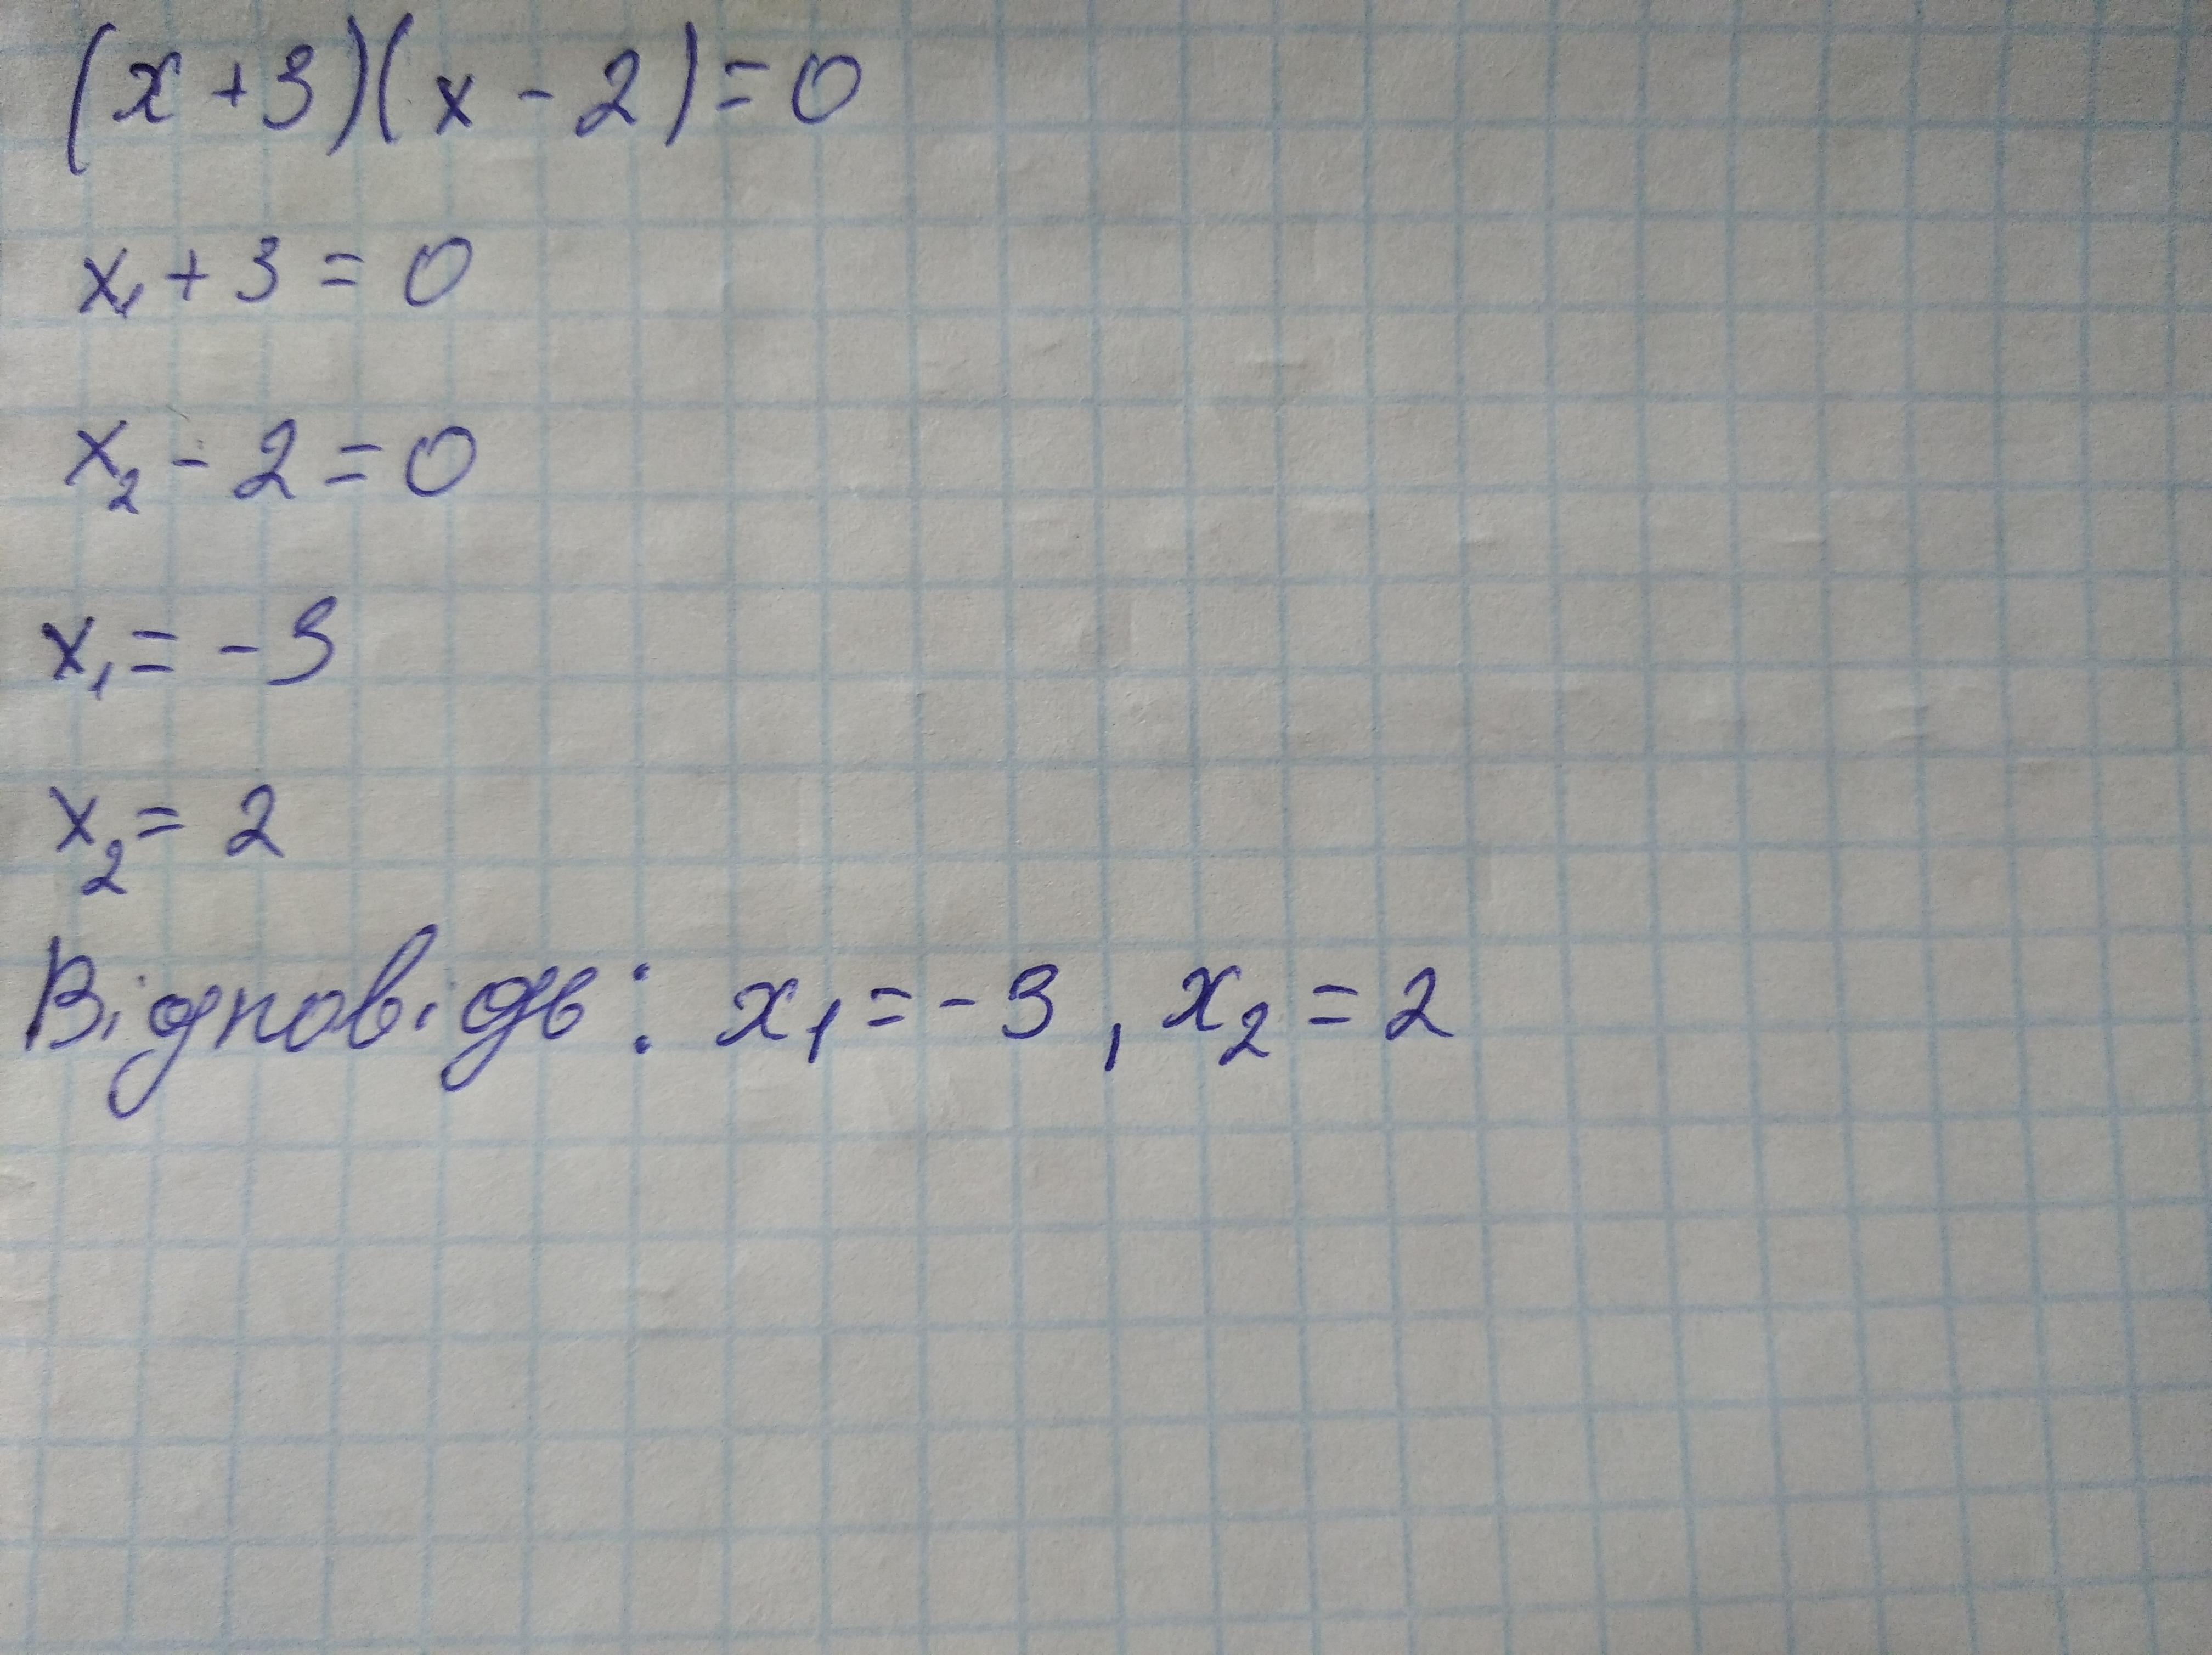 (x + 3)(x - 2) = 0
x₁ + 3 = 0
x₂ - 2 = 0
x₁ = -3
x₂ = 2
Відповідь: x₁ = -3, x₂ = 2